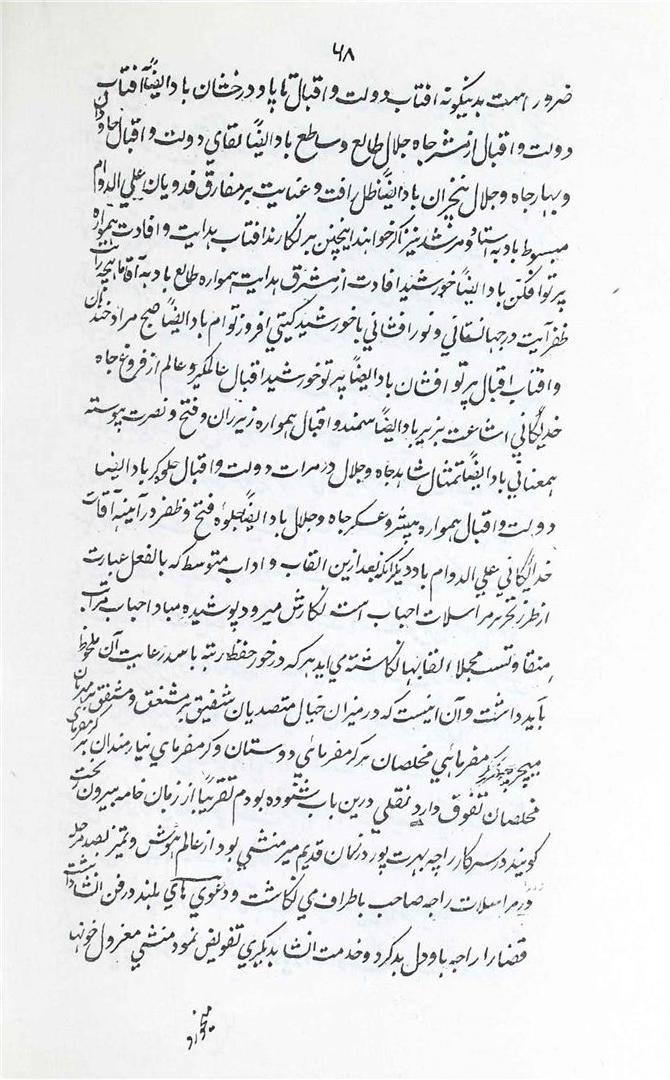 ۶۸
ضرور است بدینگونه افتاب دولت و اقبال تابان و درخشان باد ایضاً آفتاب
دولت و اقبال از مشرق جاه و جلال طالع و ساطع باد ایضاً بقای دولت و اقبال جاودان
و بهار جاه و جلال بیخزان باد ایضاً ظل رافت و عنایت بر مفارق فدویان علی الدوام
مبسوط باد به استاد و مرشد نیز اگر خواهند اینچنین بر نگارند افتاب هدایت و افادت همواره
پرتو افکن باد ایضاً خورشید افادت از مشرق هدایت همواره طالع باد به آقا ماهیچه رایت
ظفر آیت در جهانستانی و نور افشانی با خورشید گیتی افروز توام باد ایضاً صبح مراد خندان
و افتاب اقبال پرتو افشان باد ایضاً پرتو خورشید اقبال عالمگیر و عالم از فروغ جاه
خدایگانی اشاعت پزیر باد ایضاً سمند اقبال همواره زیر ران و فتح و نصرت پیوسته
همعنانی باد ایضاً تمثال شاهد جاه و جلال در مرات دولت و اقبال جلوه گر باد ایضا
دولت و اقبال همواره پیشرو عسکر جاه و جلال باد ایضاً جلوهٔ فتح و ظفر در آئینه آفاق
خدایگانی علی الدوام باد دیگر آنکه بعد ازین القاب و اداب متوسط که بالفعل عبارت
از طرز تحریر مراسلات احباب است نگارش میرود پوشیده مباد احباب مراتب
متفاوتست مجملا القابها نگاشته می اید هر که در خور حفظ رتبه باشد رعایت آن ملحوظ
باید داشت و آن اینست که در میزان خیال متصدیان شفیق بر مشفق و مشفق بر مهربان
میچربد چنانکه کرمفرمای مخلصان بر کرمفرمای دوستان و کرمفرمای نیازمندان بر کرمفرمای
مخلصان تفوق دارد نقلی درین باب شنوده بودم تقریباً از زبان خامه بیرون ریخت
گویند در سرکار راجه بهرت پور در زمان قدیم میر منشی بود از عالم هوش و تمیز بصد مرحله
دور مراسلات راجه صاحب باطراف می نگاشت و دعوی های بلند در فن انشا داشت
قضارا راجه با و دل بد کرد و خدمت انشا بدیگری تفویض نمود منشی معزول خونها
میخورد